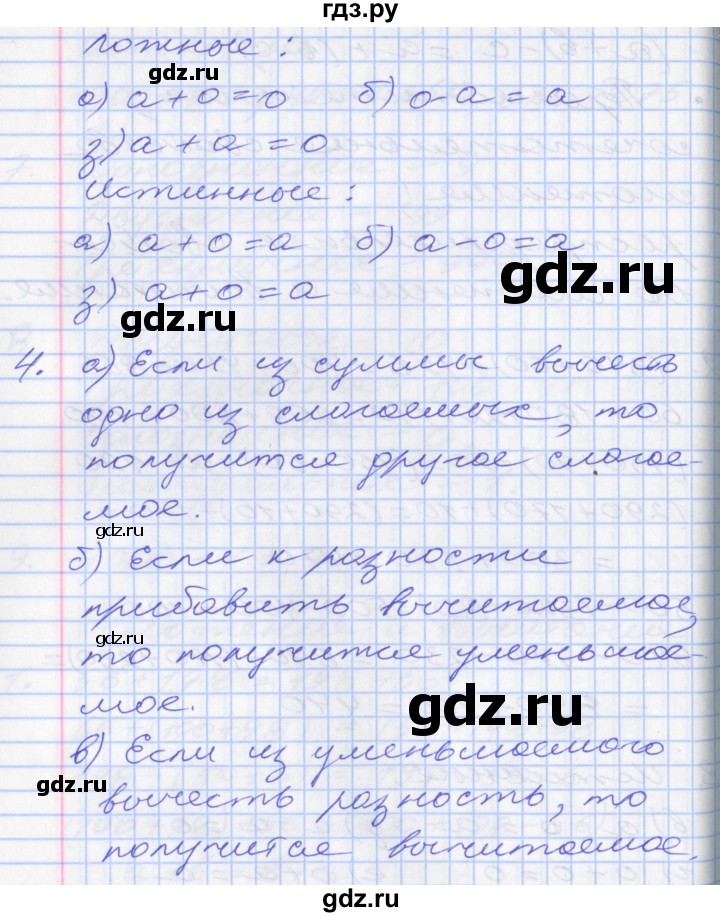 гдз.ру
ложные:
gdz.ru
а) a+o=o б) o-a=a
з) a+a=0
Истинные:
а) a+0=a б) a-0=a
gdz.ru
з) a+0=a
gdz.ru
4. а) Если из суммы вычесть
одно из слагаемых, то
получится другое слагае-
мое.
gdz.ru
б) Если к разности
прибавить вычитаемое,
gdz.ru
то получится уменьшае-
мое.
gdz.ru
в) Если из уменьшаемого
gdz.ru
вычесть разность, то
получится вычитаемое.
gdz.ru